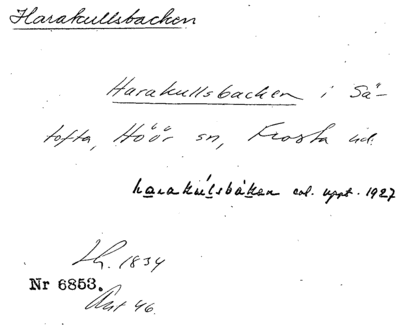 Harakullsbacken
Harakullsbacken i Sä-
tofta, Höör sn, Frosta hd.
harakúlsbàken enl. uppt. 1927
1834
Nr 6853.
46.